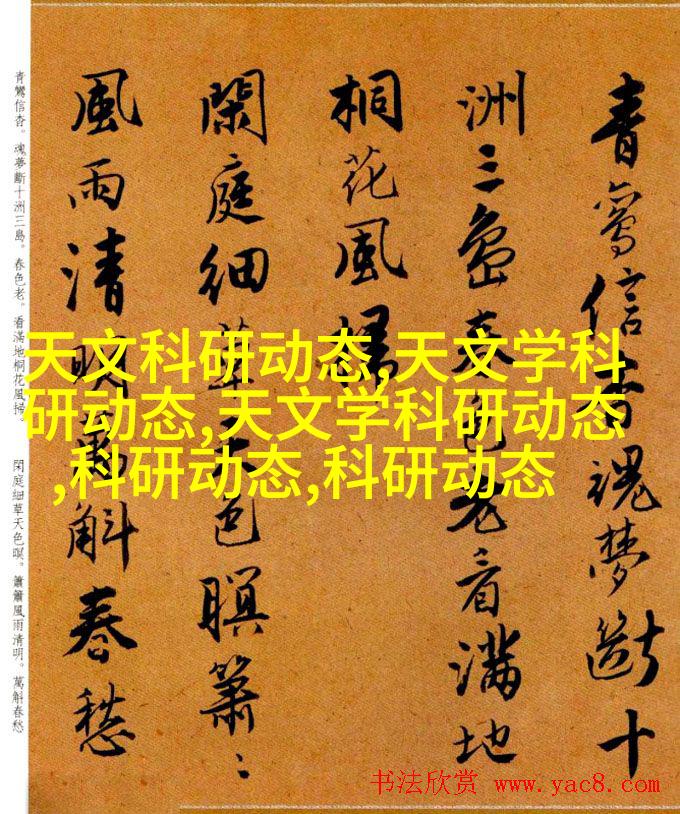 青鸞信杳魂夢斷十
洲三島春色老看滿地
桐花風掃
閑庭細草天色暝簫〻
風雨清明萬斛春愁
青鸞信杳。魂夢斷十洲三島。春色老。看滿地桐花風掃。 閑庭細草天色暝。簫簫風雨清明。萬斛春愁
天文科研动态,天文学科
研动态,天文学科研动态
,科研动态,科研动态
书法欣赏 www.yac8.com